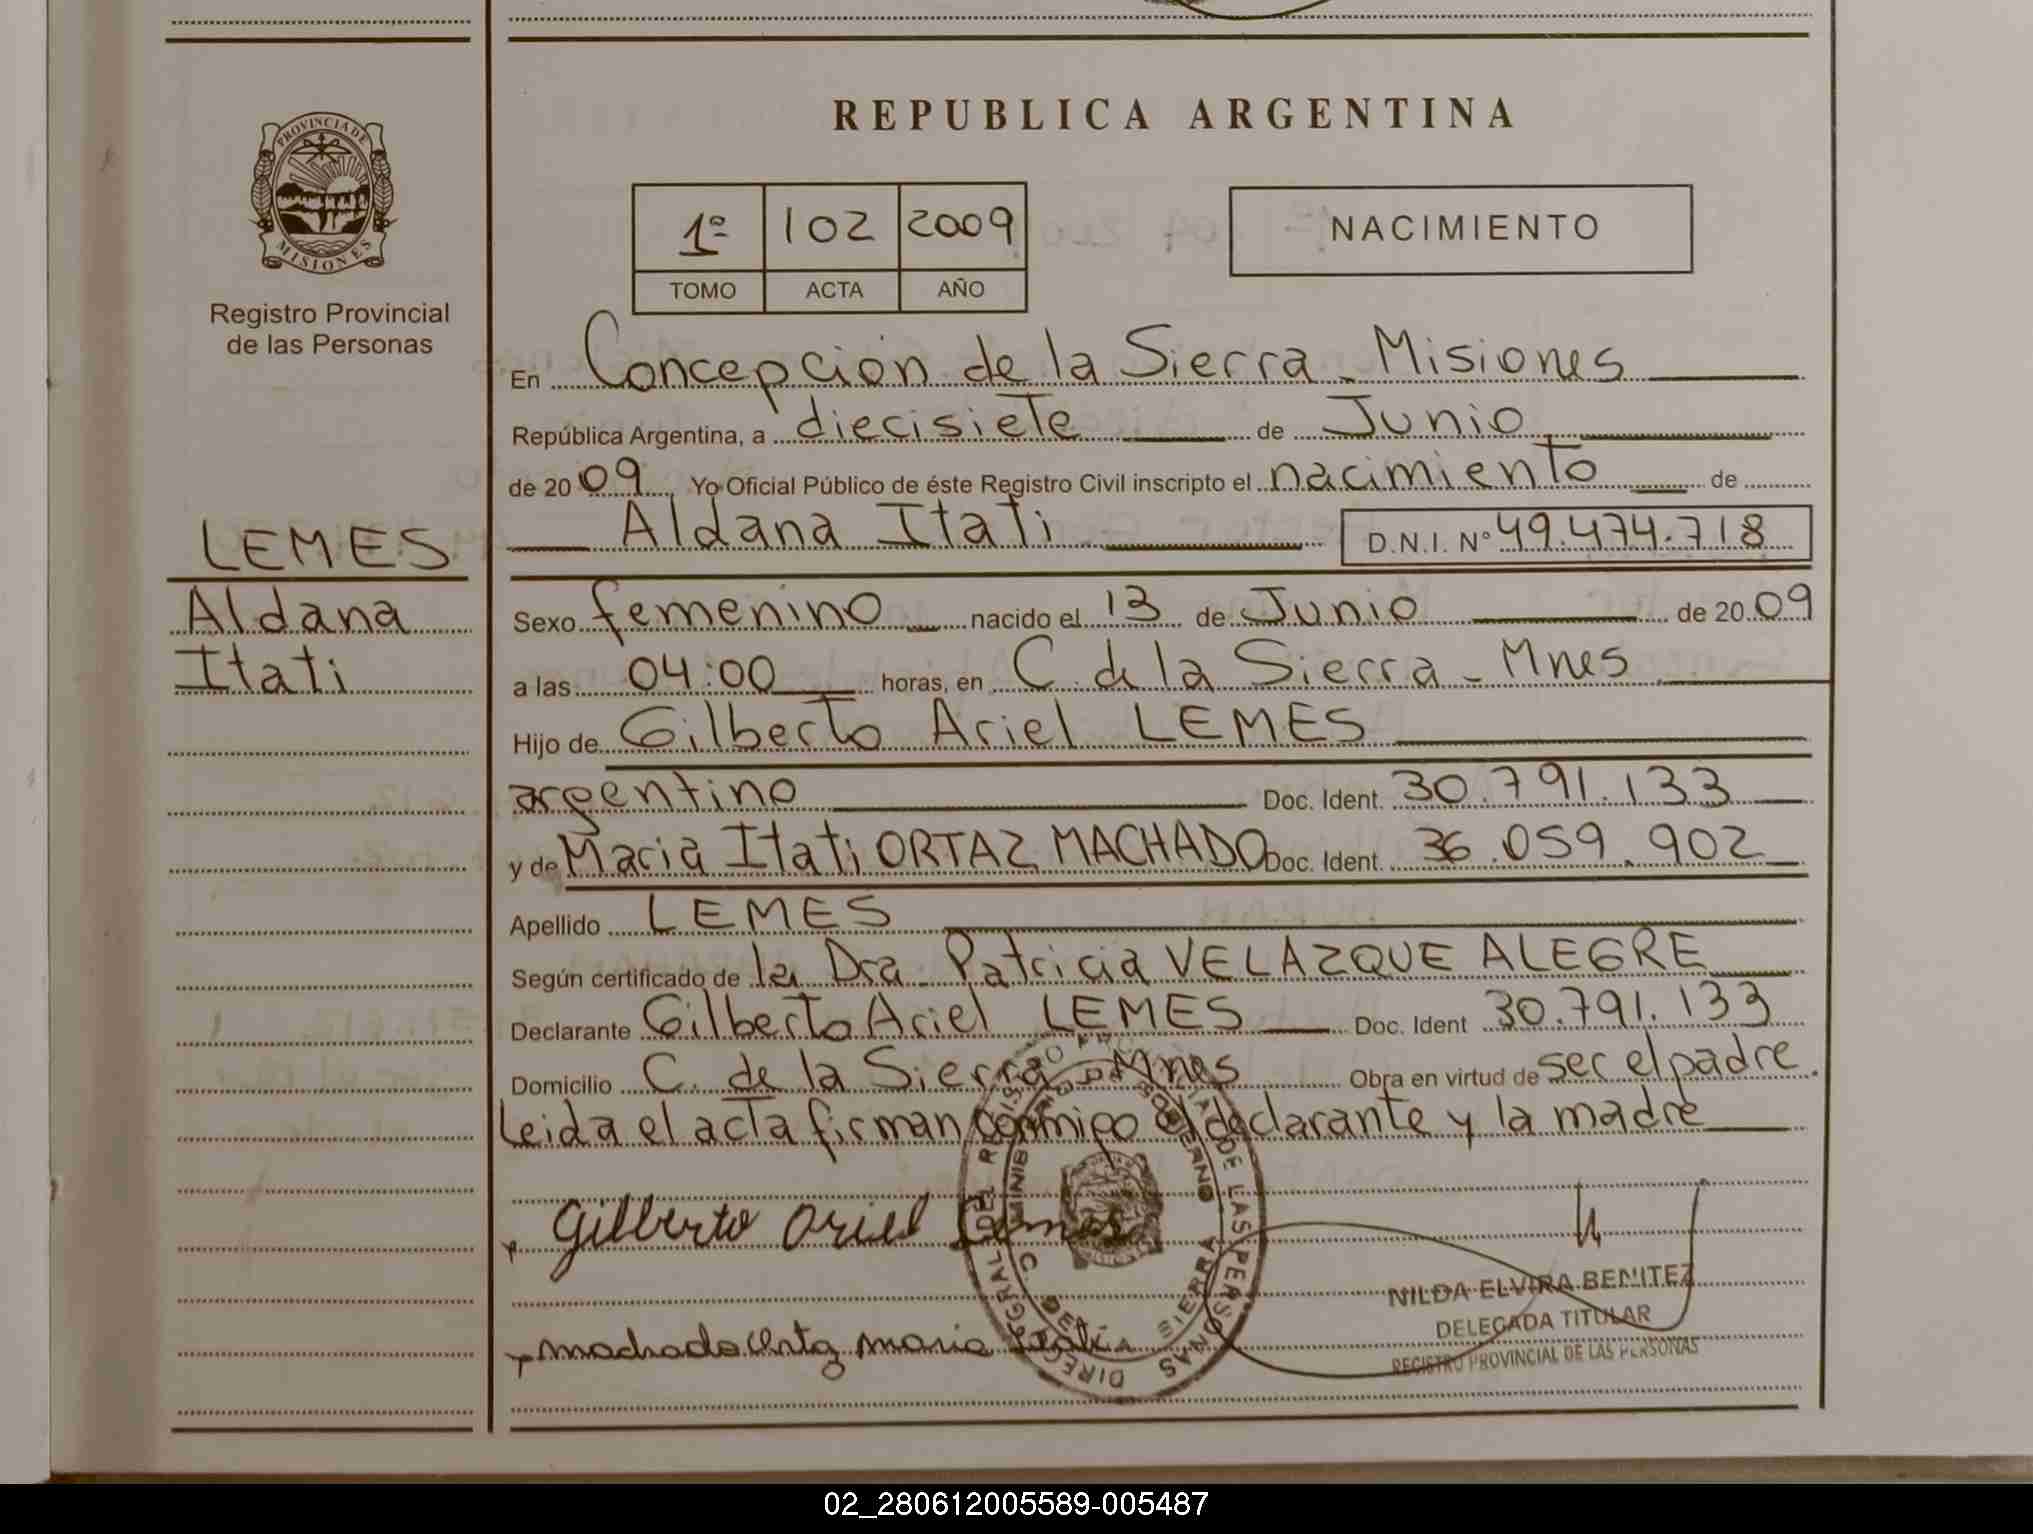 REPUBLICA ARGENTINA
PROVINCIA DE MISIONES
Registro Provincial
de las Personas
1º 102 2009
TOMO ACTA AÑO
NACIMIENTO
En Concepción de la Sierra - Misiones
República Argentina, a diecisiete de Junio
de 2009, Yo Oficial Público de éste Registro Civil inscripto el nacimiento de
Aldana Itati D.N.I. Nº 49.474.718
LEMES
Aldana
Itati
Sexo femenino nacido el 13 de Junio de 2009
a las 04:00 horas, en C. de la Sierra - Mnes
Hijo de Gilberto Ariel LEMES
argentino Doc. Ident. 30.791.133
y de Maria Itati ORTAZ MACHADO Doc. Ident. 36.059.902
Apellido LEMES
Según certificado de la Dra. Patricia VELAZQUE ALEGRE
Declarante Gilberto Ariel LEMES Doc. Ident 30.791.133
Domicilio C. de la Sierra Mnes Obra en virtud de ser el padre.
Leida el acta firman conmigo el declarante y la madre
Gilberto Ariel Lemes
machado Ortaz maria Itati
NILDA ELVIRA BENITEZ
DELEGADA TITULAR
REGISTRO PROVINCIAL DE LAS PERSONAS
02_280612005589-005487